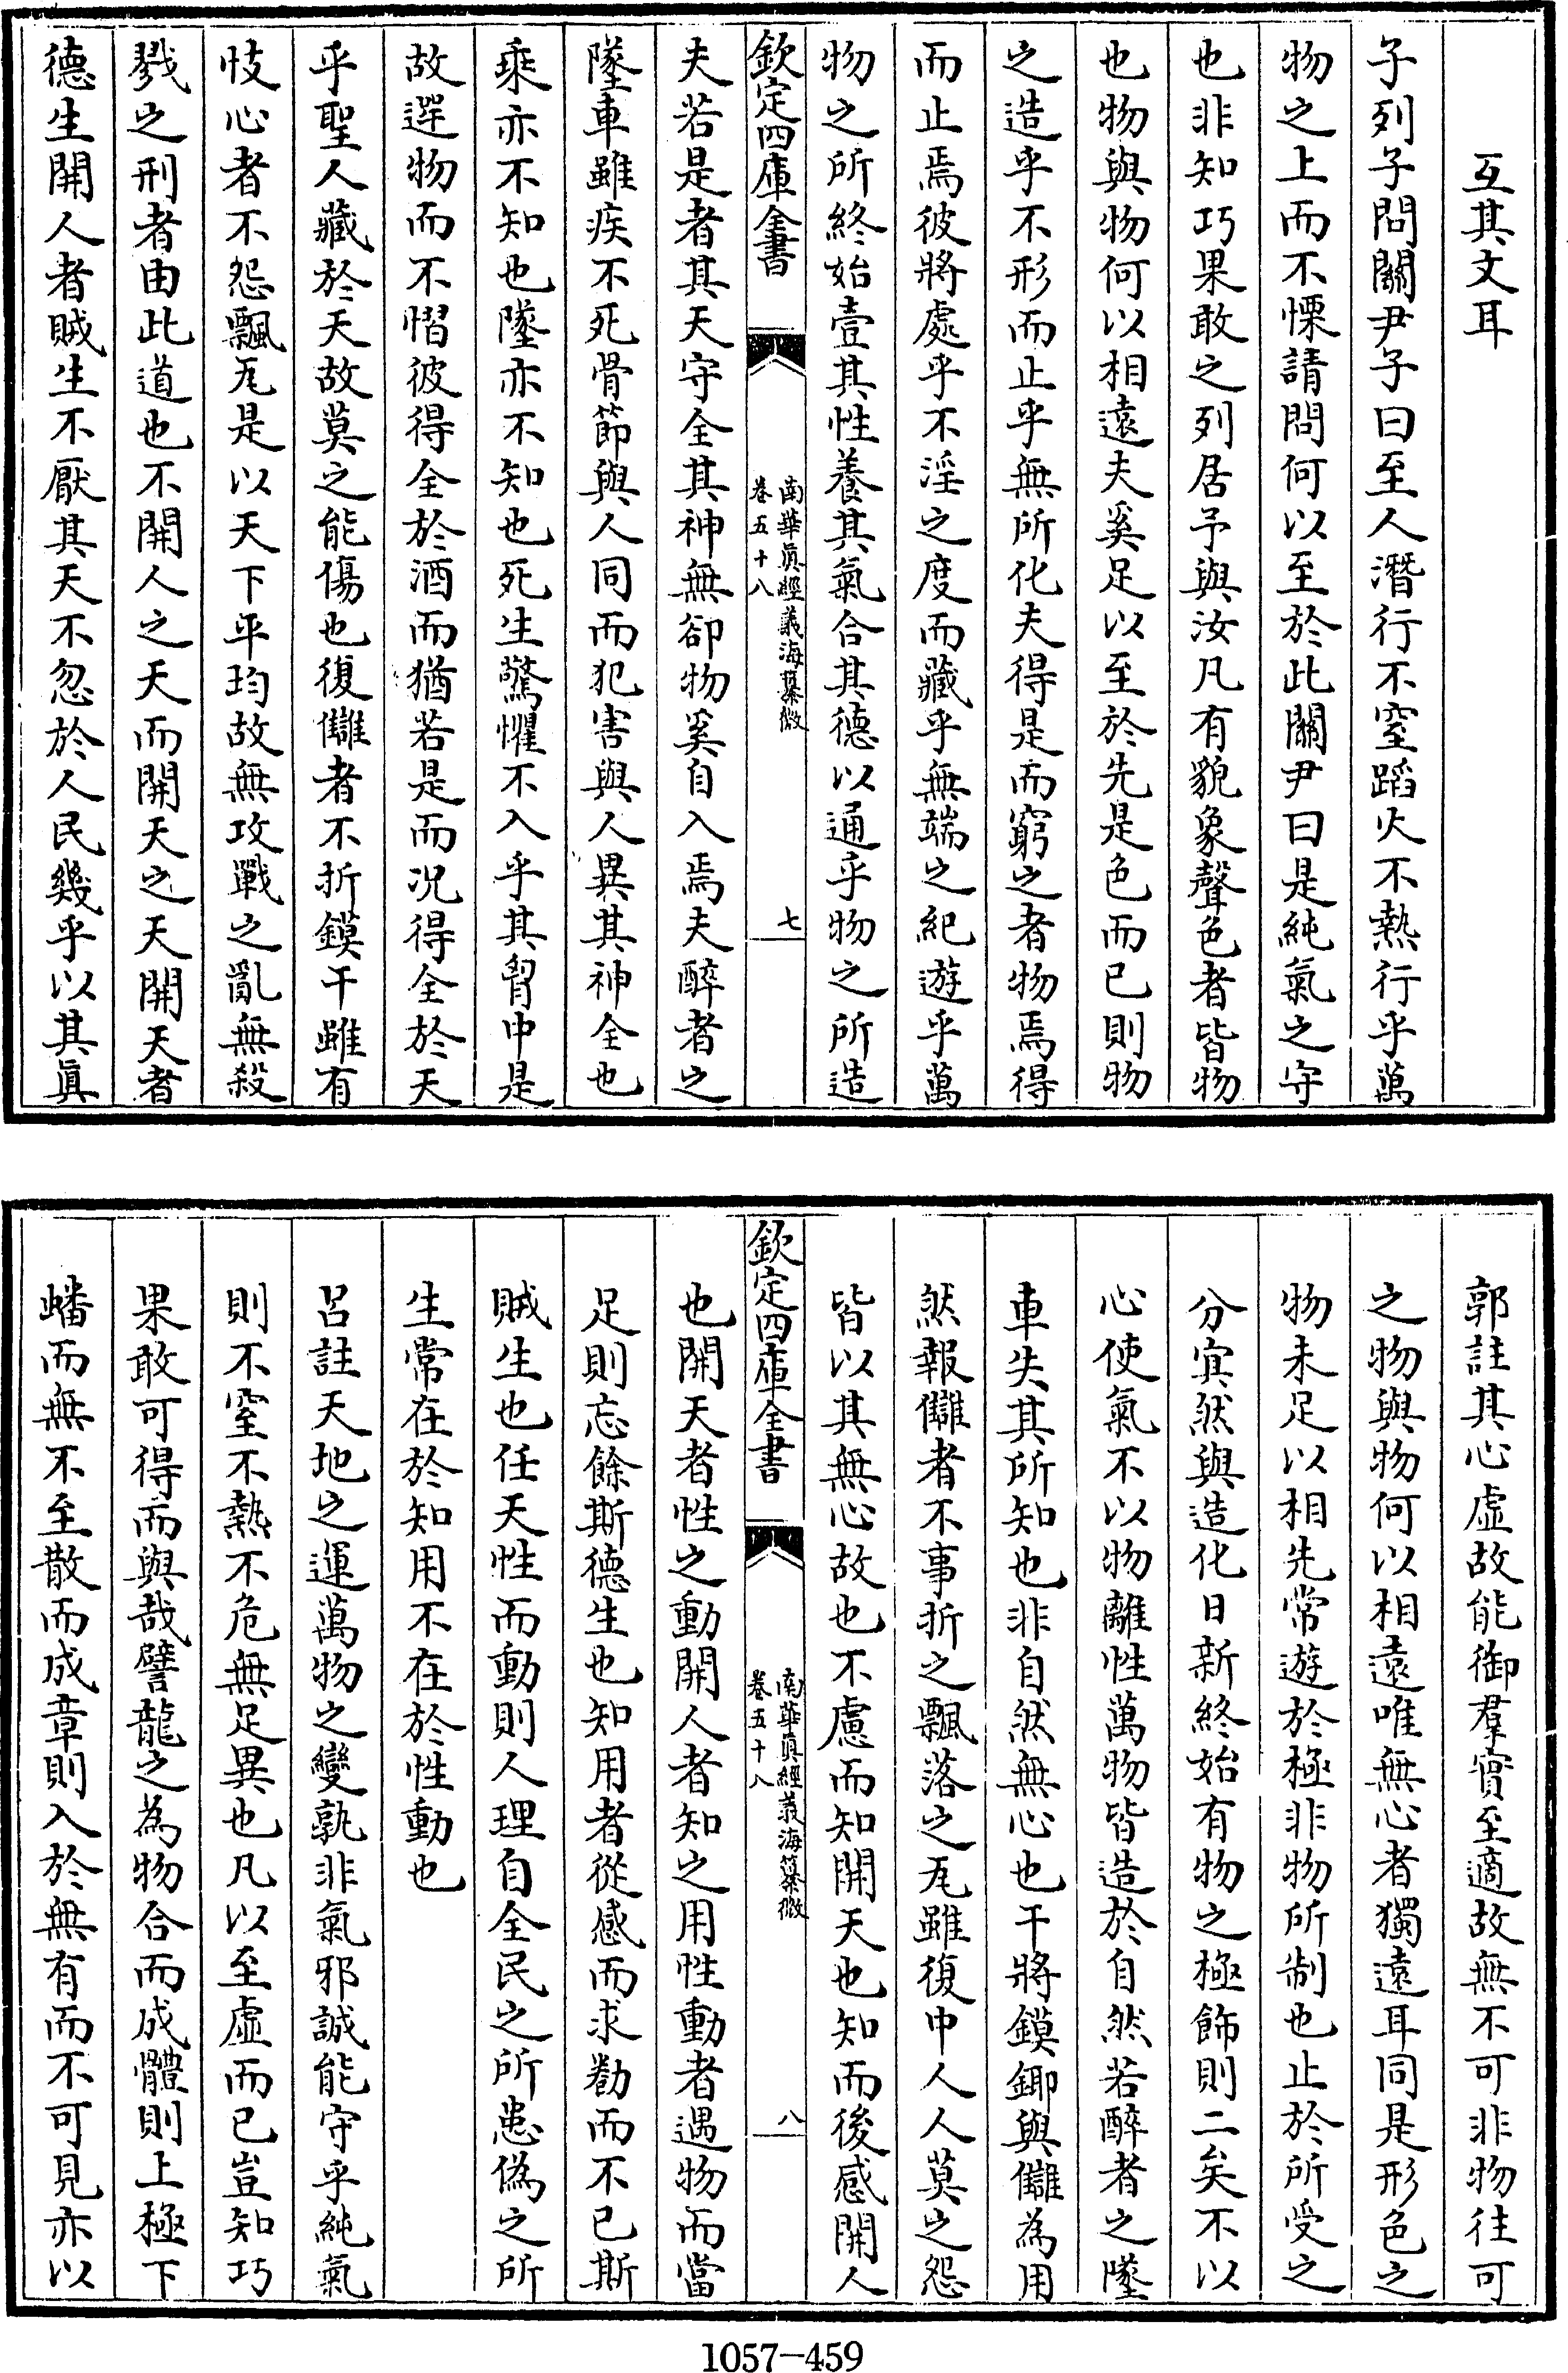 互其文耳
子列子問關尹子曰至人潛行不窒蹈火不熱行乎萬
物之上而不慄請問何以至於此關尹曰是純氣之守
也非知巧果敢之列居予與汝凡有貌象聲色者皆物
也物與物何以相遠夫奚足以至於先是色而已則物
之造乎不形而止乎無所化夫得是而窮之者物焉得
而止焉彼將處乎不淫之度而藏乎無端之紀遊乎萬
物之所終始壹其性養其氣合其德以通乎物之所造
欽定四庫全書
南華眞經義海纂微
卷五十八
七
夫若是者其天守全其神無郤物奚自入焉夫醉者之
墜車雖疾不死骨節與人同而犯害與人異其神全也
乘亦不知也墜亦不知也死生驚懼不入乎其胷中是
故遻物而不慴彼得全於酒而猶若是而况得全於天
乎聖人藏於天故莫之能傷也復讎者不折鏌干雖有
忮心者不怨飄瓦是以天下平均故無攻戰之亂無殺
戮之刑者由此道也不開人之天而開天之天開天者
德生開人者賊生不厭其天不忽於人民幾乎以其眞
郭註其心虛故能御羣實至適故無不可非物往可
之物與物何以相遠唯無心者獨遠耳同是形色之
物未足以相先常遊於極非物所制也止於所受之
分冥然與造化日新終始有物之極飾則二矣不以
心使氣不以物離性萬物皆造於自然若醉者之墜
車失其所知也非自然無心也干將鏌鋣與讎為用
然報讎者不事折之飄落之瓦雖復中人人莫之怨
皆以其無心故也不慮而知開天也知而後感開人
欽定四庫全書
南華眞經義海纂微
卷五十八
八
也開天者性之動開人者知之用性動者遇物而當
足則忘餘斯德生也知用者從感而求勌而不已斯
賊生也任天性而動則人理自全民之所患偽之所
生常在於知用不在於性動也
呂註天地之運萬物之變孰非氣邪誠能守乎純氣
則不窒不熱不危無足異也凡以至虛而已豈知巧
果敢可得而與哉譬龍之為物合而成體則上極下
蟠而無不至散而成章則入於無有而不可見亦以
1057-459